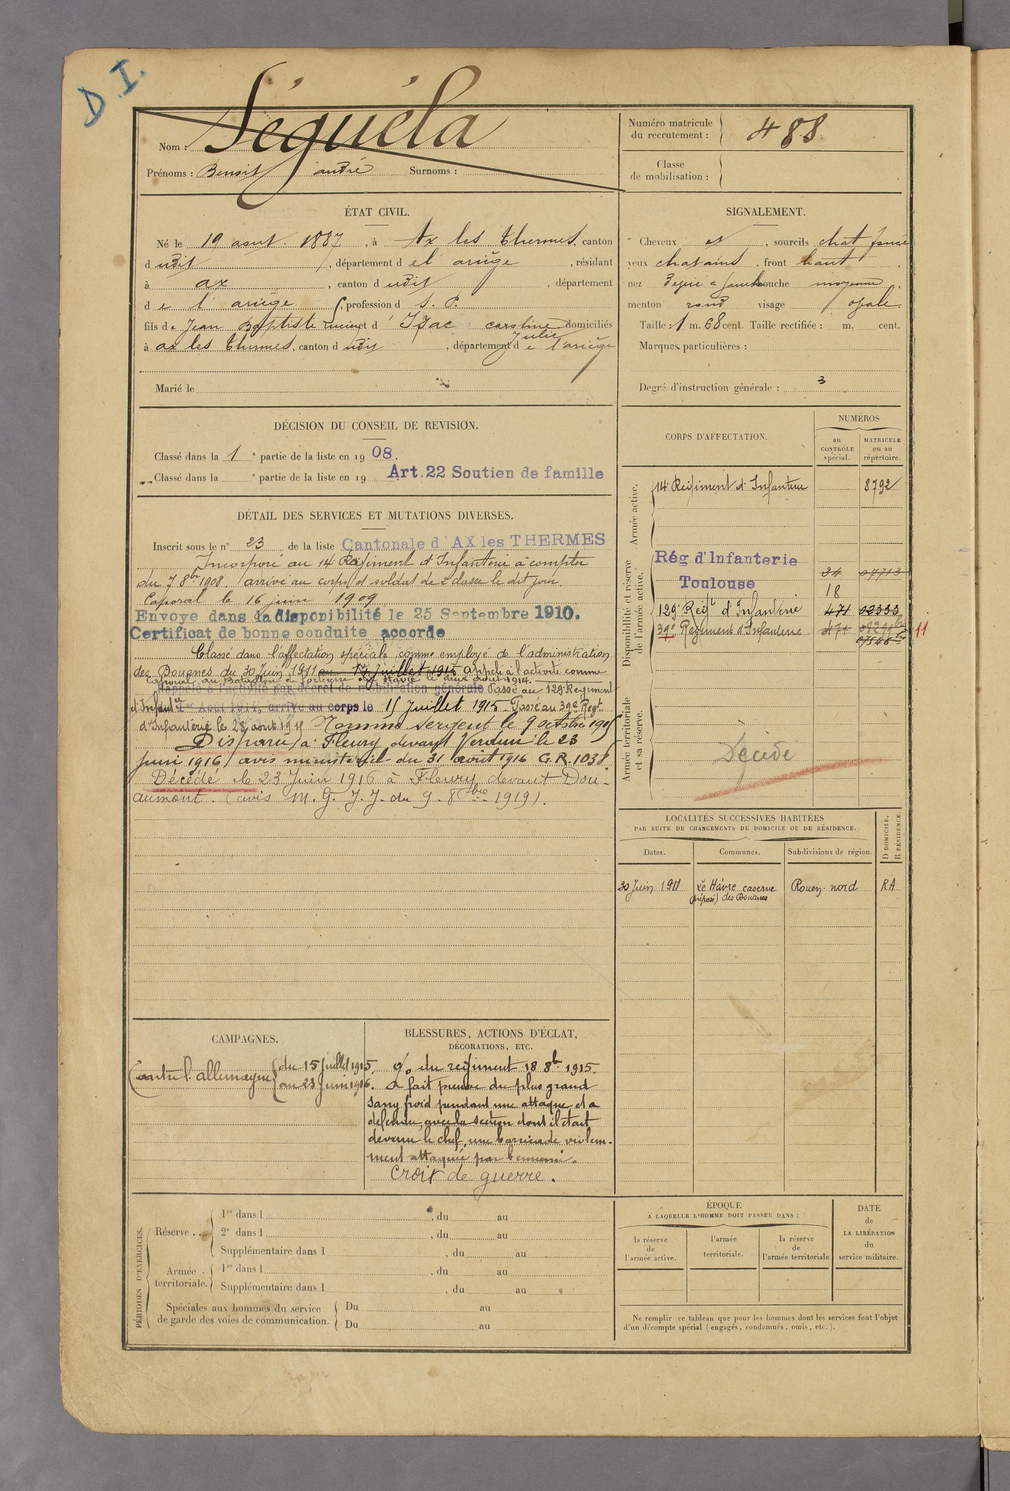 D I.
Nom : Séguéla
Prénoms : Benoit André Surnoms :
Numéro matricule du recrutement : 488
Classe de mobilisation :
ÉTAT CIVIL.
Né le 19 aout 1887, à Ax les Thermes, canton
d udit, département de l'ariège, résidant
à ax, canton d udit, département
de l'ariège, profession d s. P.
fils de Jean Baptiste et d' Isac caroline julie domiciliés
à ax les Thermes, canton d udit, département de l'ariège
Marié le
SIGNALEMENT.
Cheveux et, sourcils chat foncé
yeux chatains, front haut,
nez bouche moyenne,
menton rond visage opale.
Taille : 1 m. 68 cent. Taille rectifiée : m. cent.
Marques particulières :
Degré d'instruction générale : 3
DÉCISION DU CONSEIL DE REVISION.
Classé dans la 1e partie de la liste en 1908.
Classé dans la e partie de la liste en 19 Art. 22 Soutien de famille
CORPS D'AFFECTATION.
NUMÉROS
au CONTRÔLE spécial.
MATRICULE ou au répertoire.
Armée active.
14 Régiment d'Infanterie 8792
Disponibilité et réserve de l'armée active.
Rég d'Infanterie
Toulouse
18
129e Regt d'Infanterie 471 02333
39e Regiment d'Infanterie 11
Armée territoriale et sa réserve.
Décédé
DÉTAIL DES SERVICES ET MUTATIONS DIVERSES.
Inscrit sous le n° 23 de la liste Cantonale d'AX les THERMES
Incorporé au 14 Régiment d'Infanterie à compter
du 7 8bre 1908, arrivé au corps et soldat de 2e classe le dit jour.
Caporal le 16 juin 1909
Envoyé dans la disponibilité le 25 Septembre 1910.
Certificat de bonne conduite accordé
Classé dans l'affectation spéciale comme employé de l'administration
des Douanes du 30 Juin 1911 au 14 Juillet 1915 appelé à l'activité comme
caporal au Bataillon de forteresse du Havre le deux août 1914.
Rappelé à l'activité par décret de mobilisation générale Passé au 129e Regiment
d'Infanterie Août 1914, arrivé au corps le 15 juillet 1915 Passé au 39e Regt
d'Infanterie le 28 août 1915 Nommé Sergent le 9 octobre 1915
Disparu à Fleury devant Verdun le 23
Juin 1916) avis ministériel du 31 août 1916 G.R. 1038
Décédé le 23 Juin 1916 à Fleury devant Dou-
aumont. (avis M. G. J. J. du 9. 8bre 1919).
LOCALITÉS SUCCESSIVES HABITÉES
PAR SUITE DE CHANGEMENTS DE DOMICILE OU DE RÉSIDENCE.
Dates. Communes. Subdivisions de région. D DOMICILE. R RÉSIDENCE.
30 Juin 1911 Le Hâvre caserne (préposé) des Douanes Rouen-nord RA
CAMPAGNES.
Contre l'allemagne du 15 Juillet 1915.
au 23 Juin 1916.
BLESSURES, ACTIONS D'ÉCLAT,
DÉCORATIONS, ETC.
% du regiment 18 8bre 1915.
a fait preuve du plus grand
sang froid pendant une attaque et a
defendu, avec la section dont il était
devenu le chef, une barricade violem-
ment attaquée par l'ennemi.
Croix de guerre.
PÉRIODES D'EXERCICES.
Réserve
1re dans l , du au
2e dans l , du au
Supplémentaire dans l , du au
Armée territoriale.
1re dans l , du au
Supplémentaire dans l , du au
Spéciales aux hommes du service de garde des voies de communication.
Du au
Du au
ÉPOQUE
A LAQUELLE L'HOMME DOIT PASSER DANS :
la réserve de l'armée active.
l'armée territoriale.
la réserve de l'armée territoriale
DATE de LA LIBÉRATION du service militaire.
Ne remplir ce tableau que pour les hommes dont les services font l'objet
d'un décompte spécial (engagés, condamnés, omis, etc.).